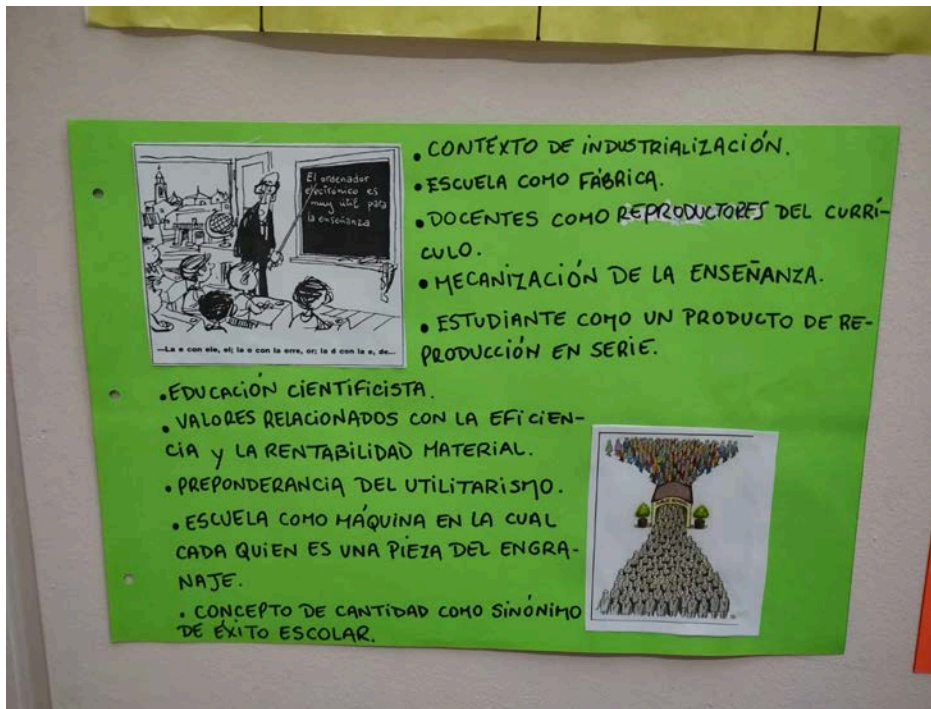 El ordenador
electrónico es
muy útil para
la enseñanza
—La e con ele, el; la o con la erre, or; la d con la e, de...
• CONTEXTO DE INDUSTRIALIZACIÓN.
• ESCUELA COMO FÁBRICA.
• DOCENTES COMO REPRODUCTORES DEL CURRÍ-
CULO.
• MECANIZACIÓN DE LA ENSEÑANZA.
• ESTUDIANTE COMO UN PRODUCTO DE RE-
PRODUCCIÓN EN SERIE.
• EDUCACIÓN CIENTIFICISTA.
• VALORES RELACIONADOS CON LA EFICIEN-
CIA y LA RENTABILIDAD MATERIAL.
• PREPONDERANCIA DEL UTILITARISMO.
• ESCUELA COMO MÁQUINA EN LA CUAL
CADA QUIEN ES UNA PIEZA DEL ENGRA-
NAJE.
• CONCEPTO DE CANTIDAD COMO SINÓNIMO
DE ÉXITO ESCOLAR.